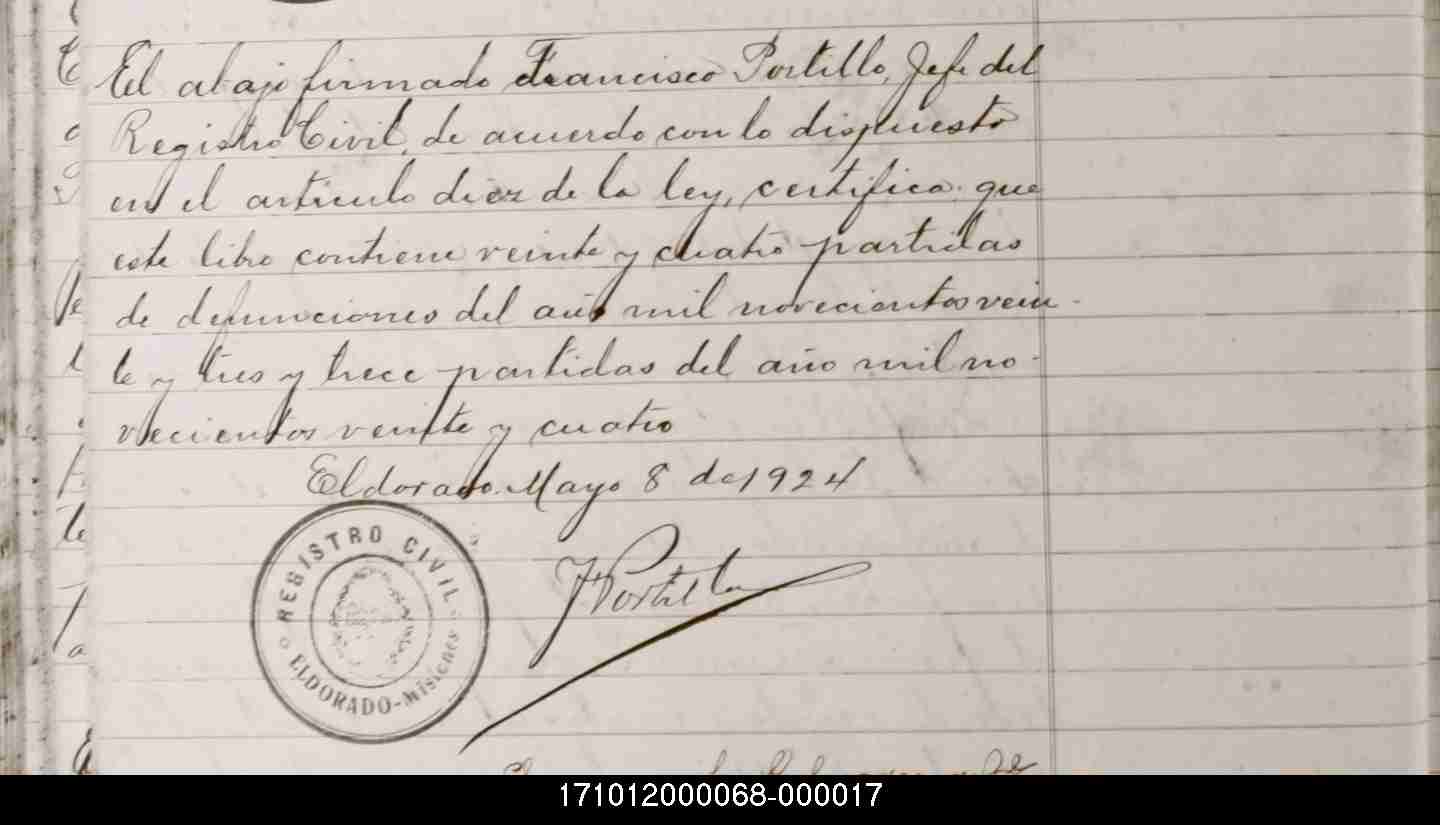 El abajo firmado Francisco Portillo, Jefe del
Registro Civil, de acuerdo con lo dispuesto
en el articulo diez de la ley, certifica que
este libro contiene veinte y cuatro partidas
de defunciones del año mil novecientos vein-
te y tres y trece partidas del año mil no-
vecientos veinte y cuatro
Eldorado. Mayo 8 de 1924
F Portillo
REGISTRO CIVIL
ELDORADO-Misiones
171012000068-000017